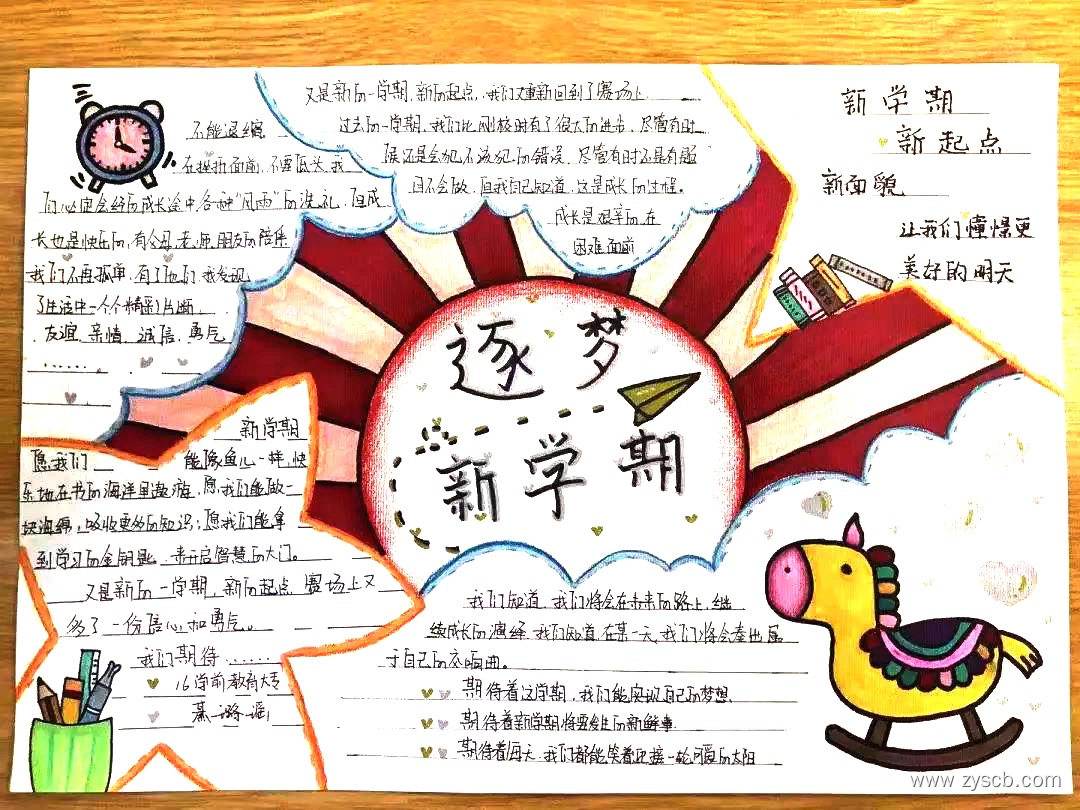 逐梦
新学期
不能退缩
在挫折面前,不要低头,我
们必定会经历成长途中各种“风雨”的洗礼,但成
长也是快乐的,有父母,老师,朋友的陪伴
我们不再孤单,有了他们,我发现
了生活中一个个精彩片断,
友谊、亲情、诚信、勇气
......。
又是新的一学期,新的起点,我们又重新回到了赛场上
过去的一学期,我们比刚入校时有了很大的进步,尽管有时
候还是会犯不该犯的错误,尽管有时还是有题
目不会做,但我自己知道,这是成长的过程。
成长是艰辛的,在
困难面前
新学期
新起点
新面貌
让我们憧憬更
美好的明天
新学期
愿我们 能像鱼儿一样,快
乐地在书的海洋里遨游,愿我们能做一
块海绵,吸收更多的知识;愿我们能拿
到学习的金钥匙,来开启智慧的大门。
又是新的一学期,新的起点,赛场上又
多了一份信心和勇气。
我们期待......
16学前教育大专
我们知道,我们将会在未来的路上,继
续成长的演绎,我们知道,在某一天,我们将会奏出属
于自己的交响曲。
期待着这学期,我们能实现自己的梦想
期待着新学期将要发生的新鲜事
期待着每天,我们都能笑着迎接一轮可爱的太阳
www.zyscb.com